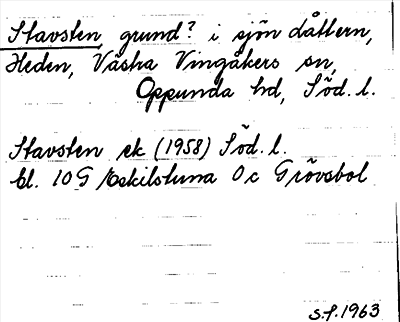 Stavsten, grund? i sjön Låttern,
Heden, Västra Vingåkers sn,
Oppunda hd, Söd. l.
Stavsten ek (1958) Söd. l.
bl. 10 G Eskilstuna 0 c Grövsbol
S.F. 1963